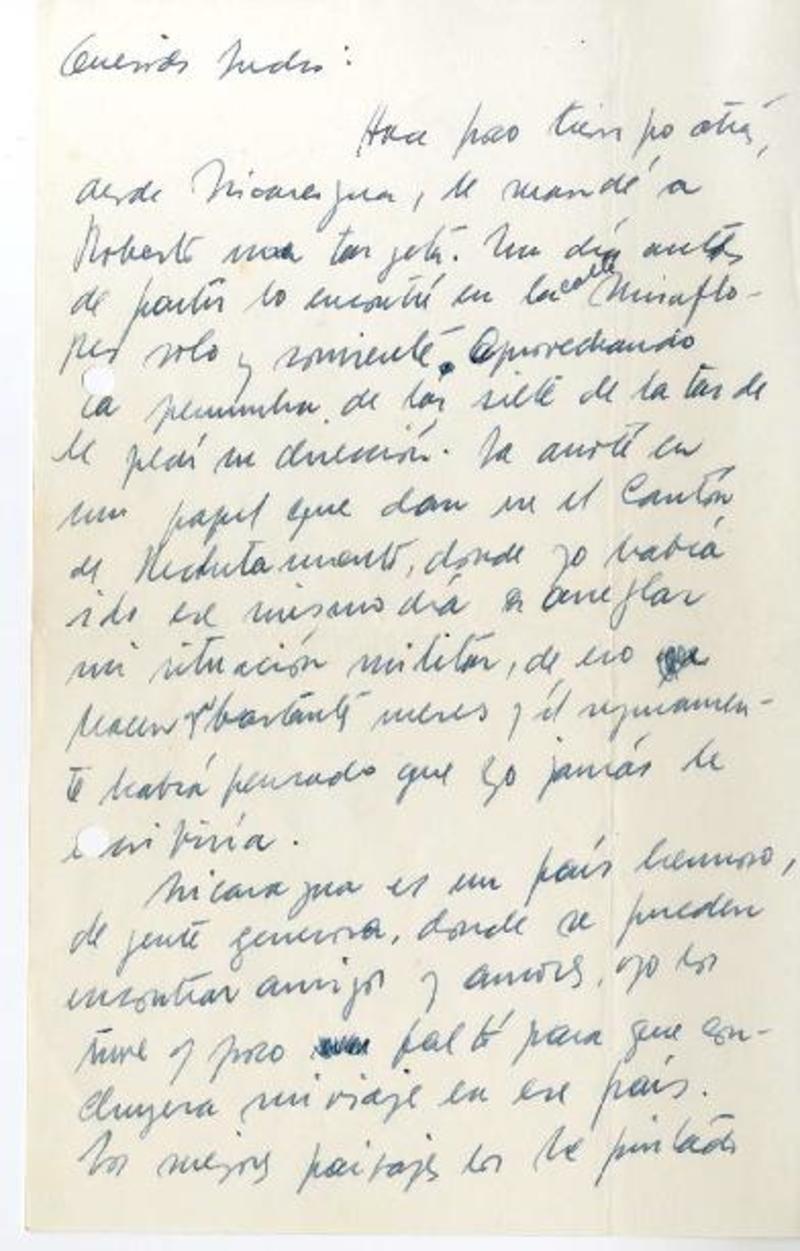 Querido Pedro:
Hace poco tiempo atrás,
desde Nicaragua, le mandé a
Roberto una tarjeta. Un día antes
de partir lo encontré en la calle Miraflo-
res solo y sonriente. Aprovechando
la penumbra de las siete de la tarde
le pedí su dirección. La anoté en
un papel que dan en el Cantón
de Reclutamiento, donde yo había
ido ese mismo día a arreglar
mi situación militar, de eso
hacen bastante meses y él seguramen-
te habrá pensado que yo jamás le
escribiría.
Nicaragua es un país hermoso,
de gente generosa, donde se pueden
encontrar amigos y amores, yo los
tuve y poco faltó para que con-
cluyera mi viaje en ese país.
Los mejores paisajes los he pintado